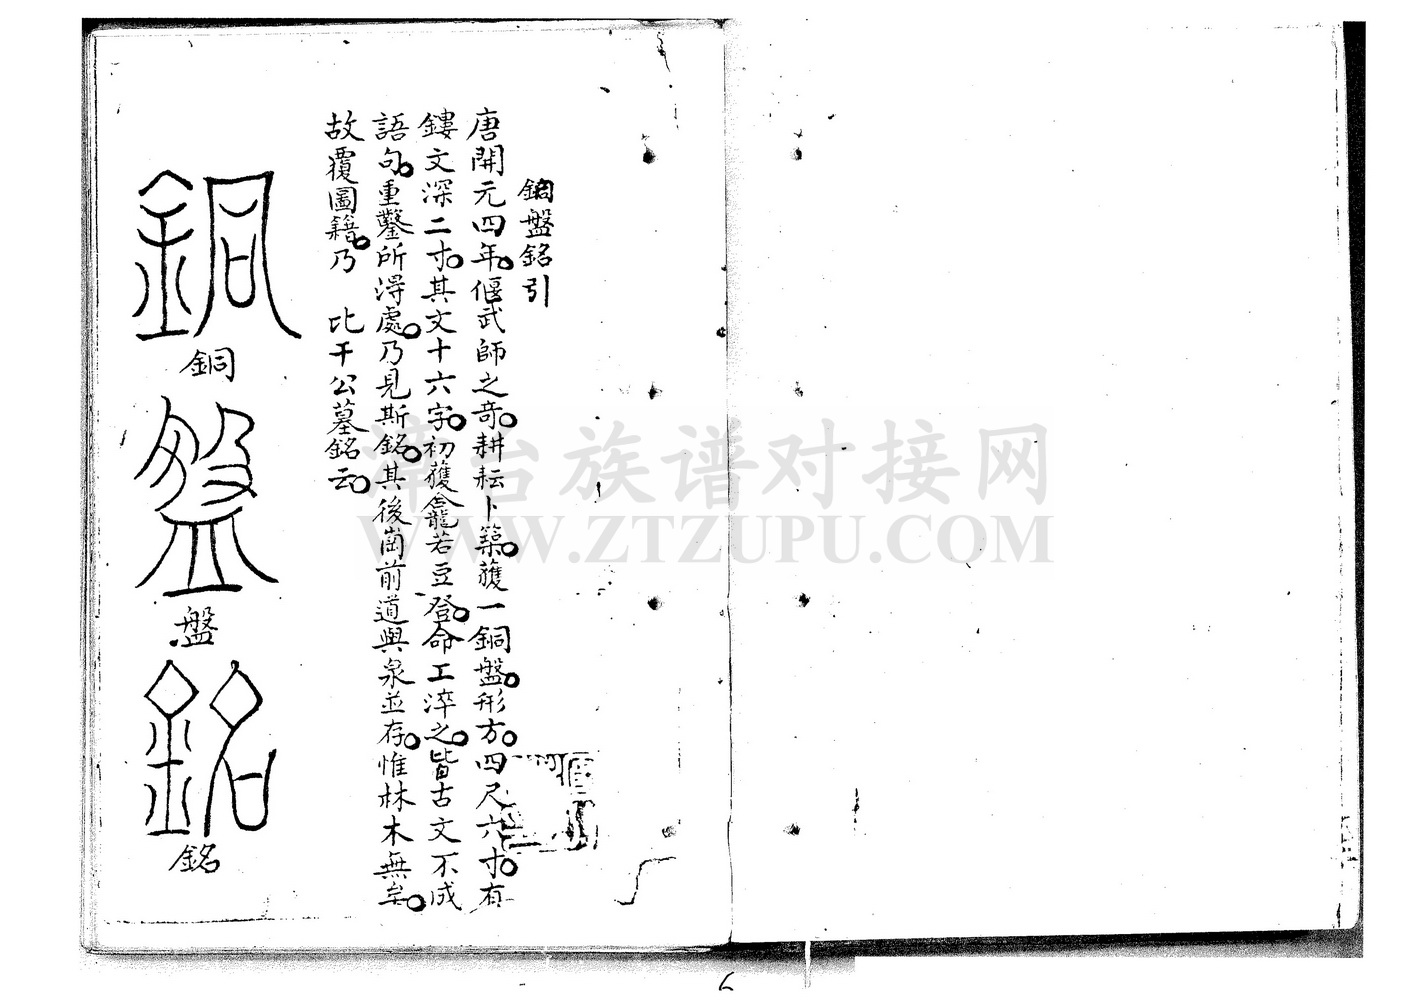 銅盤銘引
唐開元四年偃武師之竒耕耘卜築獲一銅盤形方四尺六寸有
鏤文深二寸其文十六字初獲龕若豆登命工淬之皆古文不成
語句重鑿所淂處乃見斯銘其後崗前道與泉並存惟林木無矣
故覆圖籍乃 比干公墓銘云
銅
盤
銘
銅
盤
銘
滦台族谱对接网
WWW.ZTZUPU.COM
6